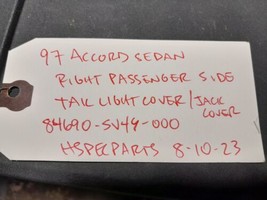 97 ACCORD SEDAN
RIGHT PASSENGER SIDE
TAIL LIGHT COVER / JACK COVER
84690-SV4Y-000
HSPECPARTS 8-10-23